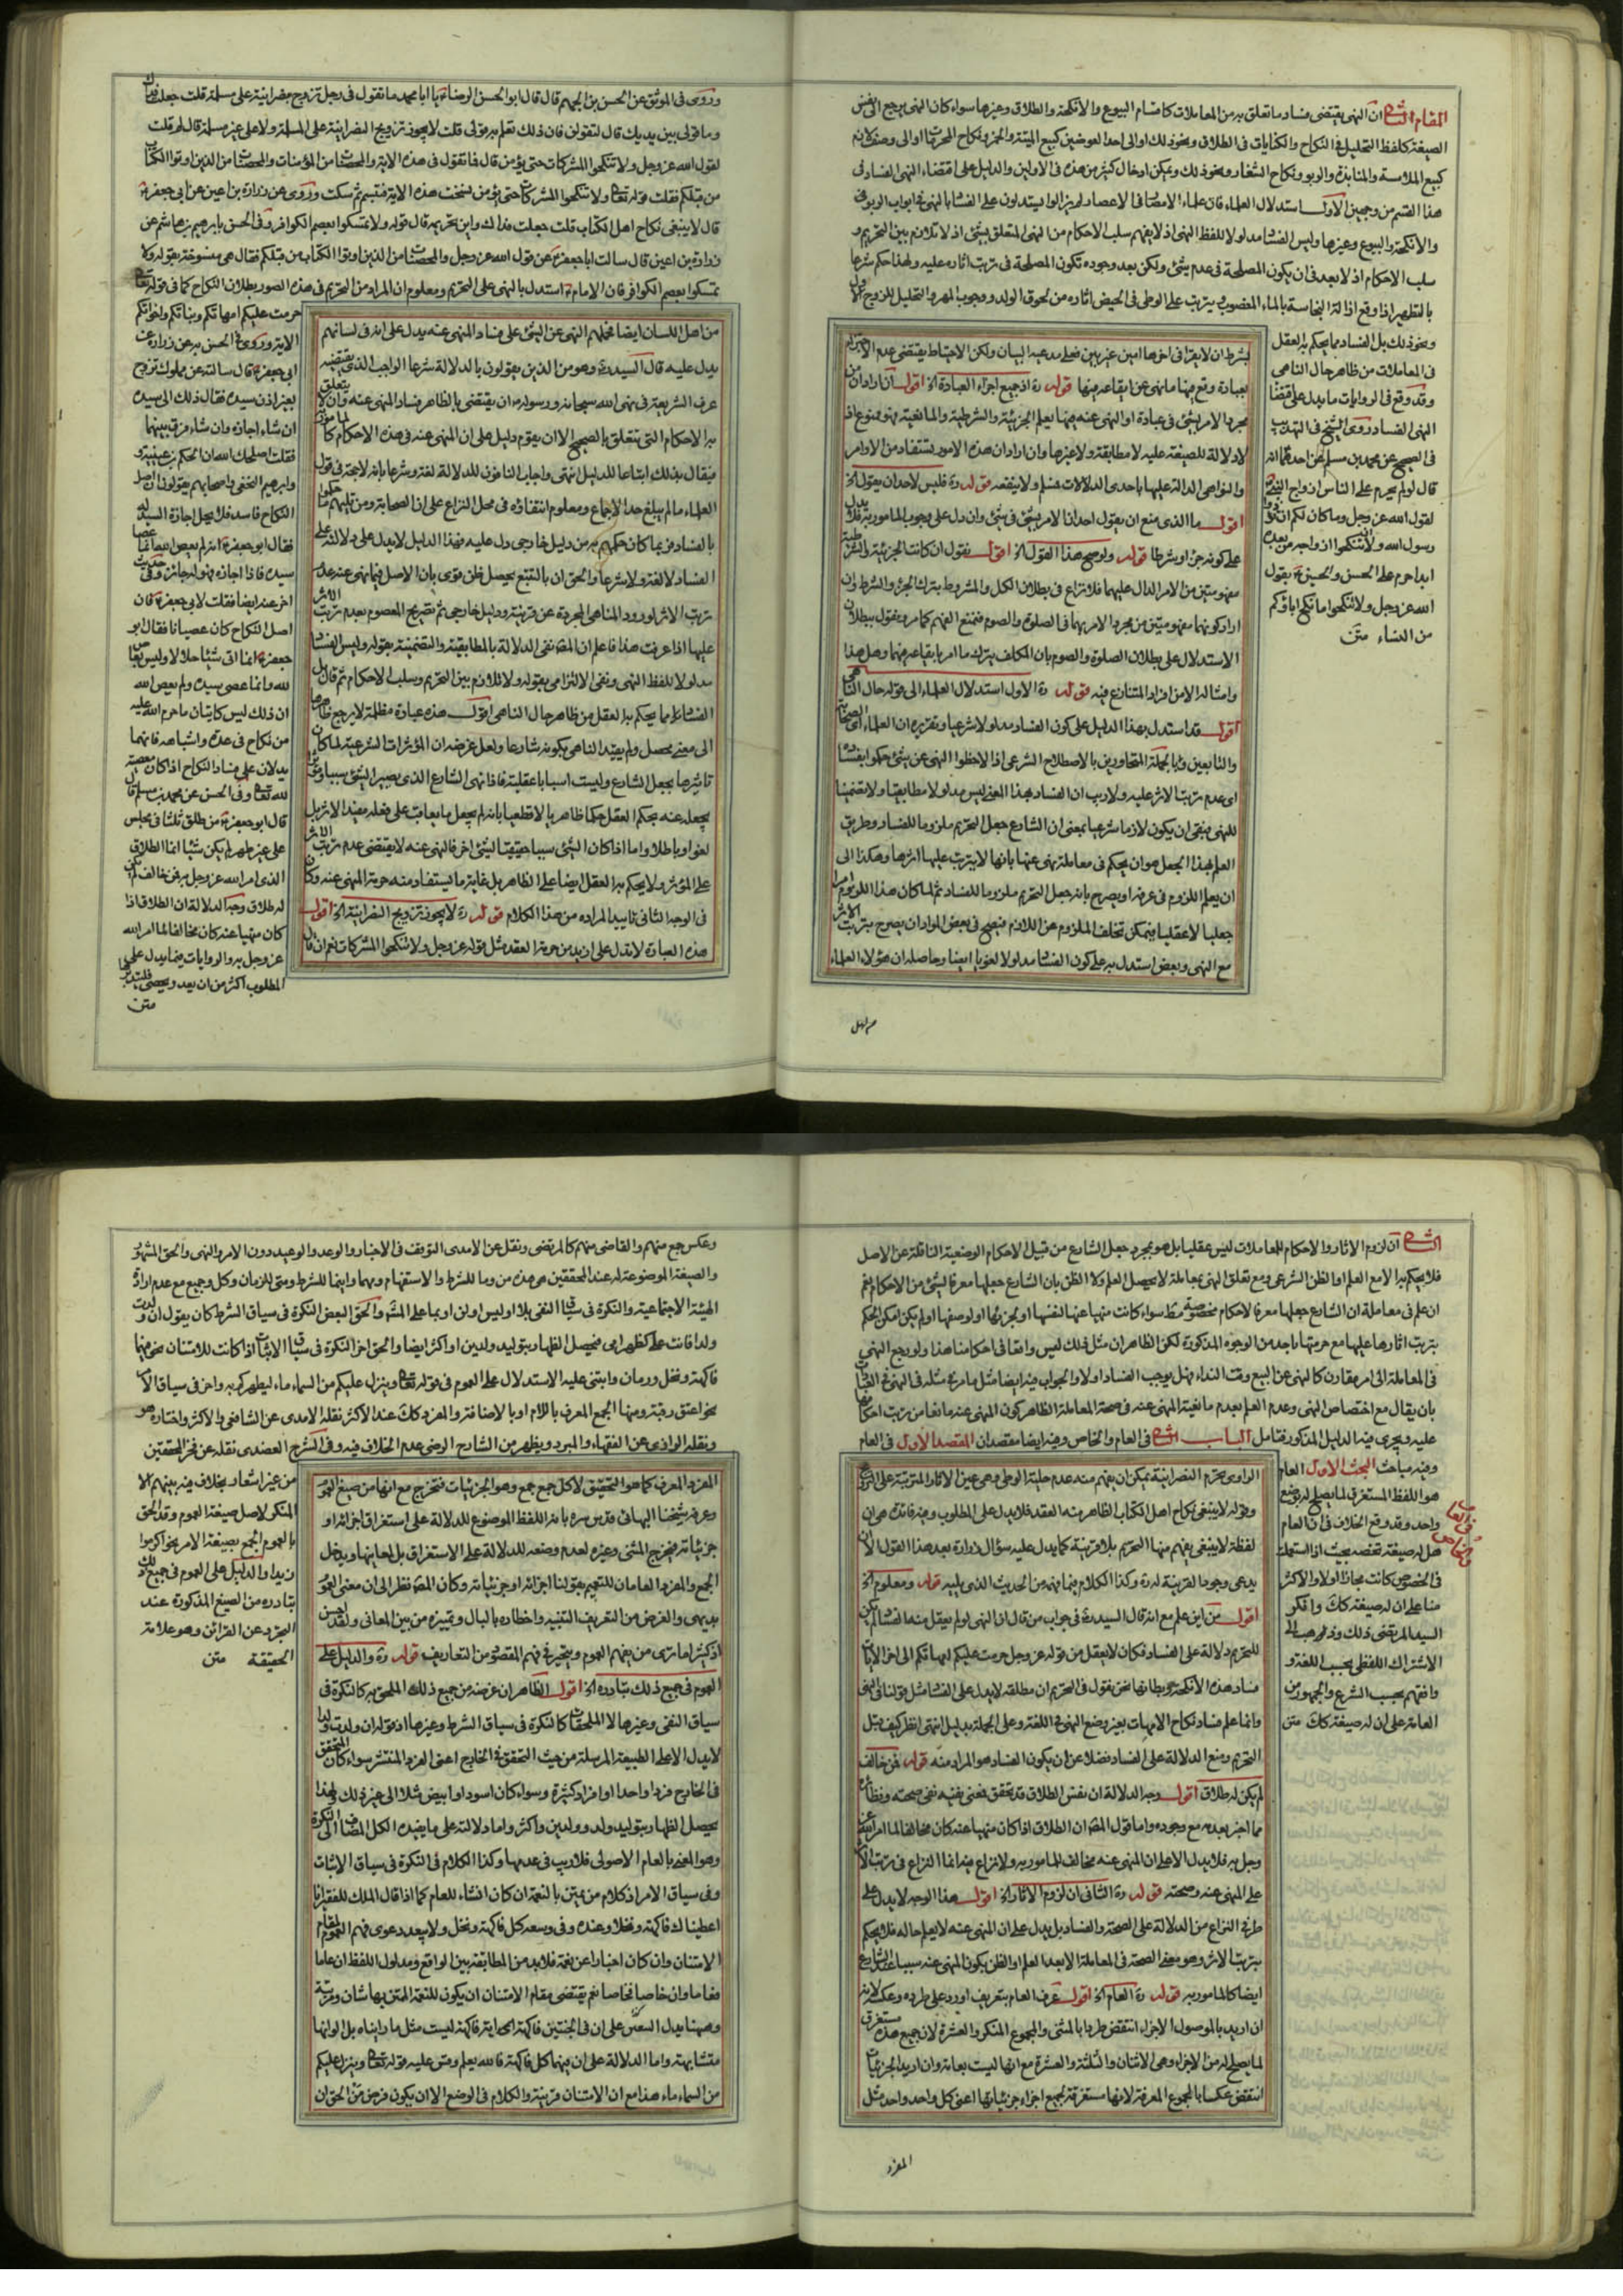 المقام الثانى ان النهى يقتضى فساد ما تعلق به من المعاملات كاقسام البيوع والانكحة والطلاق وغيرها سواء كان النهى يرجع الى نفس
الصيغة كلفظ التحليل فى النكاح والكنايات فى الطلاق ونحو ذلك او الى احد العوضين كبيع الميتة والخمر ونكاح المحرمات او الى وصف لازم
كبيع الملامسة والمنابذة والربو ونكاح الشغار ونحو ذلك ويمكن ادخال كثير من هذه فى الاولين والدليل على اقتضاء النهى الفساد فى
هذا القسم من وجهين الاول استدلال العلماء فان علماء الامصار فى الاعصار لم يزالوا يستدلون على الفساد بالنهى فى ابواب الربو
والانكحة والبيوع وغيرها وليس الفساد مدلولا للفظ النهى اذ لا يفهم سلب الاحكام من النهى المتعلق بشئ اذ لا تلازم بين التحريم و
سلب الاحكام اذ لا بعد فى ان يكون المصلحة فى عدم شئ ولكن بعد وجوده تكون المصلحة فى ترتب اثاره عليه ولهذا حكم شرعا
بالتطهير اذا وقع ازالة النجاسة بالماء المغصوب ويترتب على الوطى فى الحيض اثاره من لحوق الولد ووجوب المهر والتحليل للزوج الاول
ونحو ذلك بل الفساد مما يحكم به العقل
فى المعاملات من ظاهر حال الناهى
وقد وقع فى الروايات ما يدل على اقتضاء
النهى الفساد روى الشيخ فى التهذيب
فى الصحيح عن محمد بن مسلم عن احدهما انه
قال لو لم يحرم على الناس ازواج النبى
لقول الله عز وجل وما كان لكم ان تؤذوا
رسول الله ولا ان تنكحوا ازواجه من بعده
ابدا حرم على الحسن والحسين بقول
الله عز وجل ولا تنكحوا ما نكح اباؤكم
من النساء متن
بعبادة وقع فيها ما نهى عن ايقاعه فيها قوله ره اذ جميع اجزاء العبادة الخ اقول ان اراد ان من
مجرد الامر بشئ فى عبادة او النهى عنه فيها يعلم الجزئية والشرطية والمانعية فهو ممنوع اذ
لا دلالة للصيغة عليه لا مطابقة ولا غيرها وان اراد ان هذه الامور تستفاد من الاوامر
والنواهى الدالة عليها باحدى الدلالات فمسلم ولا ينفعه قوله ره فليس لاحد ان يقول الخ
اقول ما الذى منع ان يقول احد انا الامر بشئ فى شئ وان دل على وجوب المامور به فلا يدل
على كونه جزء او شرطا قوله ولو صح هذا القول الخ اقول نقول ان كانت الجزئية والشرطية
مفهومتين من الامر الدال عليهما فلا نزاع فى بطلان الكل والمشروط بترك الجزء والشرط وان
اراد كونهما مفهومتين من مجرد الامر بهما فى الصلوة والصوم فنمنع الفهم كما مر ونقول ببطلان
الاستدلال على بطلان الصلوة والصوم بان المكلف بترك ما امر بايقاعه فيهما وهل هذا
وامثاله الا من افراد المتنازع فيه قوله ره الاول استدلال العلماء الى قوله حال الناهى
اقول قد استدل بهذا الدليل على كون الفساد مدلولا شرعيا وتقريره ان العلماء اى الصحابة
والتابعين وبالجملة المتحاورين بالاصطلاح الشرعى اذا لاحظوا النهى عن شئ حكموا بفساده
اى عدم ترتب الاثر عليه ولا ريب ان الفساد بهذا المعنى ليس مدلولا مطابقيا ولا تضمنيا
للنهى فبقى ان يكون لازما شرعيا بمعنى ان الشارع جعل التحريم ملزوما للفساد وطريق
العلم بهذا الجعل هو ان يحكم فى معاملة نهى عنها بانها لا يترتب عليها اثرها وهكذا الى
ان يعلم اللزوم فى عرفه او يصرح بانه جعل التحريم ملزوما للفساد ثم لما كان هذا اللزوم امرا
جعليا لا عقليا فيمكن تخلف الملزوم عن اللازم فيصح فى بعض المواد ان يصرح بترتب الاثر
مع النهى وبعض استدل به على كون الفساد مدلولا لغويا ايضا وحاصله ان هؤلاء العلماء
وروى فى الموثق عن الحسن بن الجهم قال قال ابو الحسن الرضا يا ابا محمد ما تقول فى رجل تزوج نصرانية على مسلمة قلت جعلت فداك
وما قولى بين يديك قال لتقولن فان ذلك تعلم به قولى قلت لا يجوز تزويج النصرانية على المسلمة ولا على غير مسلمة قال لم قلت
لقول الله عز وجل ولا تنكحوا المشركات حتى يؤمن قال فما تقول فى هذه الاية والمحصنات من المؤمنات والمحصنات من الذين اوتوا الكتاب
من قبلكم فقلت قوله تعالى ولا تنكحوا المشركات حتى يؤمن نسخت هذه الاية فتبسم ثم سكت وروى عن زرارة بن اعين عن ابى جعفر
قال لا ينبغى نكاح اهل الكتاب قلت جعلت فداك واين تحريمه قال قوله ولا تمسكوا بعصم الكوافر وفى الحسن بابرهيم بن هاشم عن
زرارة بن اعين قال سالت ابا جعفر عن قول الله عز وجل والمحصنات من الذين اوتوا الكتاب من قبلكم فقال هى منسوخة بقوله ولا
تمسكوا بعصم الكوافر فان الامام استدل بالنهى على التحريم ومعلوم ان المراد من التحريم فى هذه الصور بطلان النكاح كما فى قوله تعالى
حرمت عليكم امهاتكم وبناتكم واخواتكم
الاية وروى فى الحسن به عن زرارة عن
ابى جعفر قال سالته عن مملوك تزوج
بغير اذن سيده فقال ذلك الى سيده
ان شاء اجازه وان شاء فرق بينهما
فقلت اصلحك الله ان الحكم بن عيينة و
وابرهيم النخعى واصحابهم يقولون ان اصل
النكاح فاسد فلا يحل اجازة السيد له
فقال ابو جعفر انه لم يعص الله انما عصى
سيده فاذا اجازه فهو له جائز وفى حديث
اخر عنه ايضا فقلت لابى جعفر فان
اصل النكاح كان عصيانا فقال ابو
جعفر انما اتى شيئا حلالا وليس بعاص
لله وانما عصى سيده ولم يعص الله
ان ذلك ليس كاتيان ما حرم الله عليه
من نكاح فى عدة واشباهه فانهما
يدلان على فساد النكاح اذا كان معصية
لله تعالى وفى الحسن عن محمد بن مسلم قال
قال ابو جعفر من طلق ثلثا فى مجلس
على غير طهر لم يكن شيئا انما الطلاق
الذى امر الله عز وجل به فمن خالف لم يكن
له طلاق وجه الدلالة ان الطلاق اذا
كان منهيا عنه كان مخالفا لما امر الله
عز وجل به والروايات فيما يدل على
المطلوب اكثر من ان يعد ويحصى فليتدبر
متن
من اهل اللسان ايضا فحملهم النهى عن الشئ على فساد المنهى عنه يدل على انه فى لسانهم
يدل عليه قال السيد ره وهو من الذين يقولون بالدلالة شرعا الواجب الذى يقتضيه
عرف الشريعة فى نهى الله سبحانه ورسوله ان يقتضى بالظاهر فساد المنهى عنه وان لا يتعلق
به الاحكام التى تتعلق بالصحيح الا ان يقوم دليل على ان المنهى عنه فى هذه الاحكام كالمامور
فيقال بذلك اتباعا للدليل انتهى واجاب النافون للدلالة لغة وشرعا بانه لا حجة فى قول
العلماء ما لم يبلغ حد الاجماع ومعلوم انتفاؤه فى محل النزاع على ان الصحابة ومن تليهم ما حكموا
بالفساد فربما كان حكمهم به من دليل خارجى دل عليه فهذا الدليل لا يدل على دلالته على
الفساد لا لغة ولا شرعا والحق ان بالتتبع يحصل ظن قوى بان الاصل فيما نهى عنه عدم
ترتب الاثر لورود المناهى المجردة عن قرينة ودليل خارجى ثم تصريح المعصوم بعدم ترتب الاثر
عليها اذا عرفت هذا فاعلم ان المص نفى الدلالة بالمطابقة والتضمنية بقوله وليس الفساد
مدلولا للفظ النهى ونفى الالتزامى بقوله ولا تلازم بين التحريم وسلب الاحكام ثم قال بل
الفساد مما يحكم به العقل من ظاهر حال الناهى اقول هذه عبارة مظلمة لا يرجع ظاهرها
الى معنى محصل ولم يقيد الناهى بكونه شارعا ولعل غرضه ان المؤثرات الشرعية لما كان
تاثيرها بجعل الشارع وليست اسبابا عقلية فاذا نهى الشارع الذى يصير الشئ سببا ومؤثرا
بجعله عنه يحكم العقل حكما ظاهريا لا قطعيا بانه لم يجعل ما يعاقب على فعله مفيدا لاثر بل
لغوا وباطلا واما اذا كان الشئ سببا حقيقيا لشئ اخر فالنهى عنه لا يقتضى عدم ترتب الاثر
على المؤثر ولا يحكم به العقل ايضا على الظاهر بل غاية ما يستفاد منه حرمة المنهى عنه وكان
فى الوجه الثانى تاييدا لمراده من هذا الكلام قوله ره لا يجوز تزويج النصرانية الخ اقول
هذه العبارة لا تدل على ازيد من حرمة العقد مثل قوله عز وجل ولا تنكحوا المشركات نعم ان قال
الثانى ان لزوم الاثار والاحكام للمعاملات ليس عقليا بل هو بمجرد جعل الشارع من قبيل الاحكام الوضعية الناقلة عن الاصل
فلا يحكم به الا مع العلم او الظن الشرعى ومع تعلق النهى بمعاملة لا يحصل العلم ولا الظن بان الشارع جعلها معرفا لشئ من الاحكام نعم
ان علم فى معاملة ان الشارع جعلها معرفا لاحكام مخصوصة مطلقا سواء كانت منهيا عنها لنفسها او لجزئها او لوصفها او لم يكن امكن الحكم
بترتب اثارها عليها مع حرمتها باحد من الوجوه المذكورة لكن الظاهر ان مثل ذلك ليس واقعا فى احكامنا هذا ولو رجع النهى
فى المعاملة الى امر مقارن كالنهى عن البيع وقت النداء فهل يوجب الفساد او لا والجواب فيه ايضا مثل ما مر مثله فى النهى فى العبادات
بان يقال مع اختصاص النهى وعدم العلم بعدم مانعية المنهى عنه فى صحة المعاملة الظاهر كون المنهى عنه مانعا من ترتب احكامها
عليه ويجرى فيه الدليل المذكور فتامل الباب الثانى فى العام والخاص وفيه ايضا مقصدان المقصد الاول فى العام
وفيه مباحث البحث الاول العام
هو اللفظ المستغرق لما يصلح له بوضع
واحد وقد وقع الخلاف فى ان العام
هل له صيغة تخصه بحيث اذا استعملت
فى الخصوص كانت مجازا او لا والاكثر
منا على ان له صيغة كك وانكر
السيد المرتضى ذلك وذهب الى
الاشتراك اللفظى بحسب اللغة و
وافقهم بحسب الشرع والجمهور من
العامة على ان له صيغة كك متن
الراوى تحريم النصرانية يمكن ان يفهم منه عدم حلية الوطى وهى عين الاثار المترتبة على التزويج
وقوله لا ينبغى نكاح اهل الكتاب الظاهر منه العقد فلا يدل على المطلوب وفيه فائدة هى ان
لفظة لا ينبغى يفهم منها التحريم بلا قرينة كما يدل عليه سؤال زرارة بعد هذا القول الا ان
يدعى وجود القرينة لزرارة وكذا الكلام فيما فهمه من الحديث الذى يليه قوله ومعلوم الخ
اقول من اين علم مع انه قال السيد ره فى جواب من قال ان النهى لو لم يعقل منه الفساد لم يكن
للتحريم دلالة على الفساد فكان لا يعقل من قوله عز وجل حرمت عليكم امهاتكم الى اخر الايات
فساد هذه الانكحة وبطلانها نحن نقول فى التحريم ان مطلقه لا يدل على الفساد مثل قولنا فى النهى
وانما علم فساد نكاح الامهات بغير وضع النهى فى اللغة وعلى الجملة بدليل انتهى انظر كيف نقل
التحريم ومنع الدلالة على الفساد فضلا عن ان يكون الفساد هو المراد منه قوله فمن خالف
لم يكن له طلاق اقول وجه الدلالة ان نفس الطلاق قد تحقق فمعنى نفيه نفى صحته ونظائره
مما اخبر بعدمه مع وجوده واما قول المص ان الطلاق اذا كان منهيا عنه كان مخالفا لما امر الله عز
وجل به فلا يدل الا على ان المنهى عنه مخالف للمامور به ولا نزاع فيه انما النزاع فى ترتب الاثار
على المنهى عنه وصحته قوله ره الثانى ان لزوم الاثار الخ اقول هذا الوجه لا يدل على
طرفى النزاع من الدلالة على الصحة والفساد بل يدل على ان المنهى عنه لا يعلم حاله فلا يحكم
بترتب الاثر وهو معنى الصحة فى المعاملة الا بعد العلم او الظن بكون المنهى عنه سببا عند الشارع
ايضا كالمامور به قوله ره العام الخ اقول عرف العام بتعريف اورد على طرده وعكسه لانه
ان اريد بالموصول الاجزاء انتقض طردا بالمثنى والجموع المنكر والعشرة لان جميع هذه مستغرق
لما يصلح له من الاجزاء وهى الاثنان والثلثة والعشرة مع انها ليست بعامة وان اريد الجزئيات
انتقض عكسا بالجموع المعرفة لانها مستغرقة لجميع اجزاء جزئياتها اعنى كل واحد واحد مثل
المفرد
وعكس جمع منهم والقاضى منهم كالمرتضى ونقل عن الامدى التوقف فى الاخبار والوعد والوعيد دون الامر والنهى والحق المشهور
والصيغة الموضوعة له عند المحققين هى هذه من وما للشرط والاستفهام ومهما واينما للشرط ومتى للزمان وكل وجميع مع عدم ارادة
الهيئة الاجتماعية والنكرة فى سياق النفى بلا او ليس او لن او بما على المشهور والحق البعض النكرة فى سياق الشرط كان يقول ان ولدت
ولدا فانت على كظهر امى فيحصل الظهار بتوليد ولدين او اكثر ايضا والحق اخر النكرة فى سياق الاثبات اذا كانت للامتنان نحو فيهما
فاكهة ونخل ورمان وابتنى عليه الاستدلال على العموم فى قوله تعالى وينزل عليكم من السماء ماء ليطهركم به واخر فى سياق الامر
نحو اعتق رقبة ومنها الجمع المعرف باللام او بالاضافة والمفرد كك عند الاكثر نقله الامدى عن الشافعى والاكثر واختاره هو
ونقله الرازى عن الفقهاء والمبرد ويظهر من الشارح الرضى عدم الخلاف فيه وفى الشرح العضدى نقله عن المحققين
من غير اشعار بخلاف فيه بينهم الا
المنكر لاصل صيغة العموم وقد الحق
بالعموم الجمع بصيغة الامر نحو اكرموا
زيدا والدليل على العموم فى جميع ذلك
تبادره من الصيغ المذكورة عند
التجرد عن القرائن وهو علامة
الحقيقة متن
المفرد المعرف كما هو التحقيق لا كل جمع جمع وهو الجزئيات فتخرج مع انها من صيغ العموم
وعرفه شيخنا البهائى قدس سره بانه اللفظ الموضوع للدلالة على استغراق اجزائه او
جزئياته فيخرج المثنى وغيره لعدم وضعه للدلالة على الاستغراق بل لمعانيها ويدخل
الجمع والمفرد العامان للتعميم بقولنا اجزائه او جزئياته وكان المص نظر الى ان معنى العموم
بديهى والغرض من التعريف التنبيه واخطاره بالبال وتميزه من بين المعانى ولقد احسن
اذ كثيرا ما ترى من يفهم العموم ويتحير فى فهم المقصود من التعاريف قوله ره والدليل على
العموم فى جميع ذلك تبادره الخ اقول الظاهر ان غرضه من جميع ذلك الملحق به كالنكرة فى
سياق النفى وغيرها لا الملحقات كالنكرة فى سياق الشرط وغيرها اذ قوله ان ولدت ولدا
لا يدل الا على الطبيعة المرسلة من حيث التحقق فى الخارج اعنى الفرد المنتشر سواء كان المتحقق
فى الخارج فردا واحدا او افراد كثيرة وسواء كان اسود او ابيض مثلا الى غير ذلك فلهذا
يحصل الظهار بتوليد ولد وولدين واكثر واما دلالته على ما يفيده الكل المضاف الى النكرة
وهو المعنى بالعام الاصولى فلا ريب فى عدمها وكذا الكلام فى النكرة فى سياق الاثبات
وفى سياق الامر اذ كلام من يمتن بالنعمة ان كان انشاء للعام كما اذا قال الملك للفقير انا
اعطيناك فاكهة ونخلا وعنده وفى وسعه كل فاكهة ونخل ولا يبعد دعوى فهم العموم لمقام
الامتنان وان كان اخبارا عن نعمة فلا بد من المطابقة بين الواقع ومدلول اللفظ ان عاما
فعاما وان خاصا فخاصا نعم يقتضى مقام الامتنان ان يكون للنعمة الممتن بها شان ومرتبة
وههنا يدل على ان فى الجنتين فاكهة اى اية فاكهة ليست مثل ما رايناه بل الوانها
متشابهة واما الدلالة على ان فيهما كل فاكهة فالله يعلم وقس عليه قوله تعالى وينزل عليكم
من السماء ماء هذا مع ان الامتنان قرينة والكلام فى الوضع الا ان يكون غرض من الحق ان